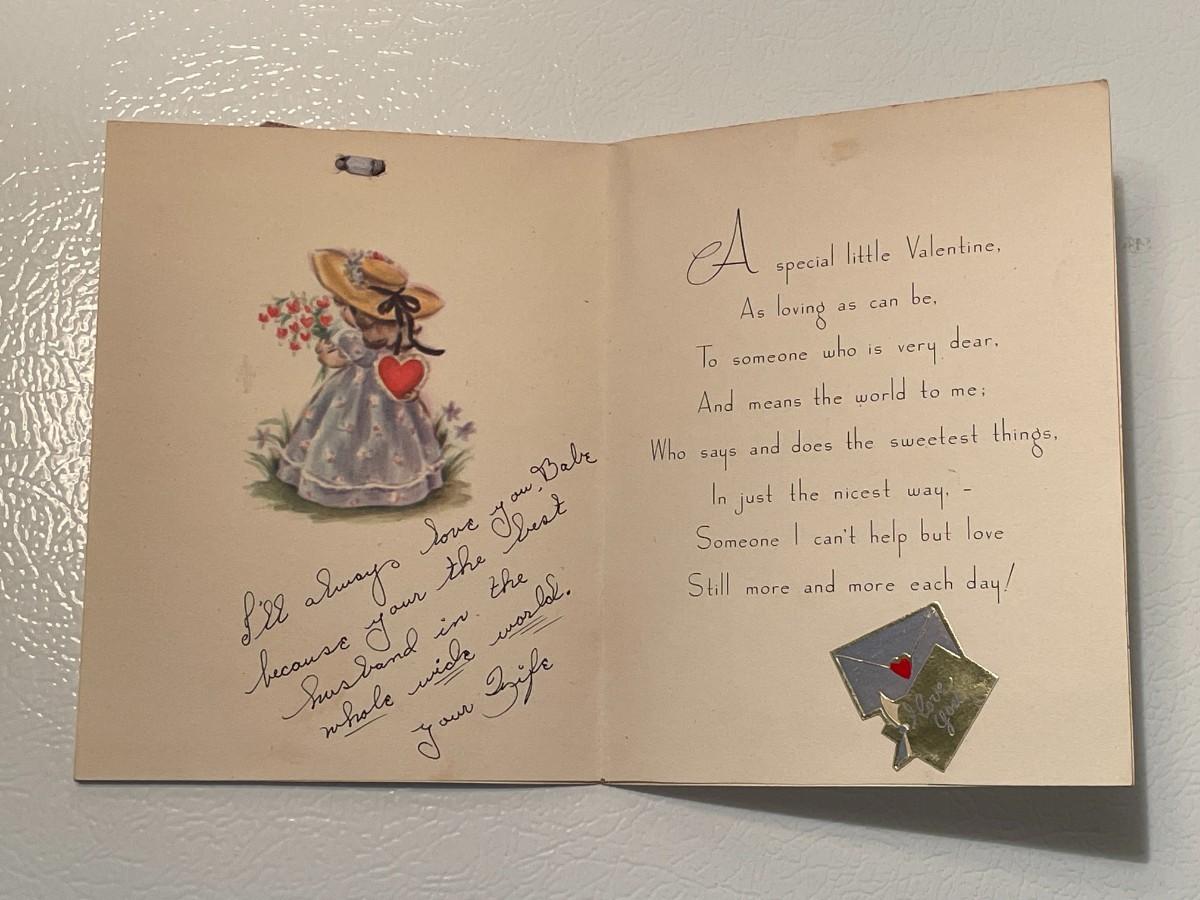 I'll always love you, Babe
because your the best
husband in the
whole wide world.
your Wife
A special little Valentine,
As loving as can be,
To someone who is very dear,
And means the world to me;
Who says and does the sweetest things,
In just the nicest way, -
Someone I can't help but love
Still more and more each day!
I love
you